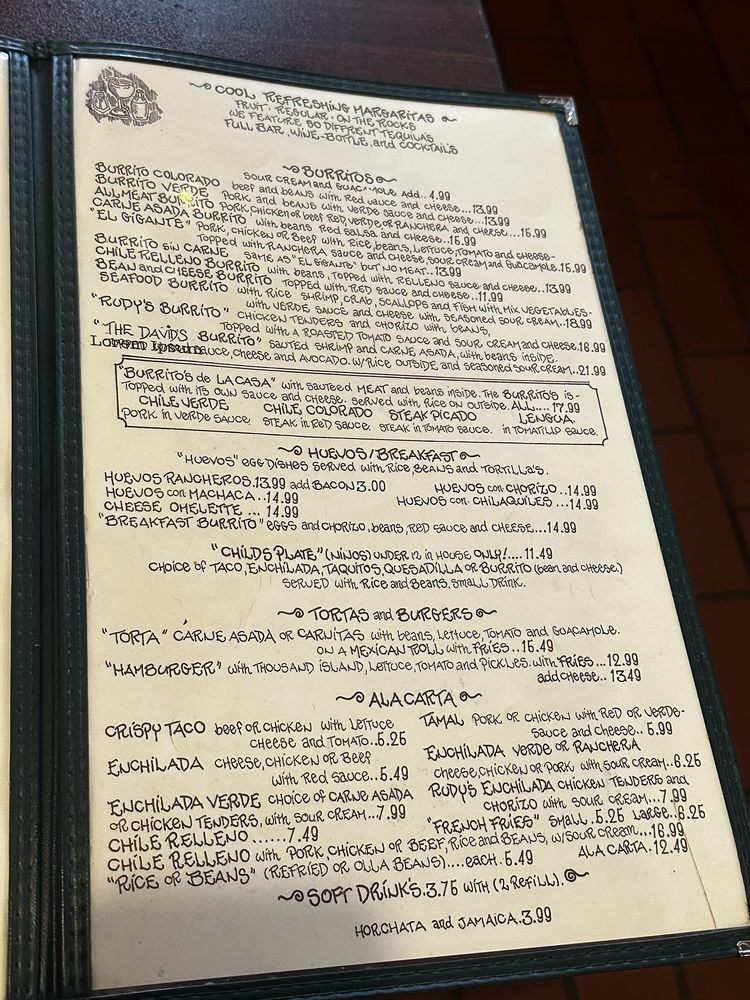 COOL REFRESHING MARGARITAS
FRUIT · REGULAR · ON THE ROCKS
WE FEATURE 50 DIFFRENT TEQUILA'S
FULL BAR, WINE-BOTTLE, and COCKTAILS
BURRITOS
SOUR CREAM and GUACAMOLE add.. 4.99
BURRITO COLORADO beef and beans with Red sauce and cheese...13.99
BURRITO VERDE Pork and beans with VERDE sauce and cheese...13.99
ALL MEAT BURRITO PORK, CHICKEN or beef RED, VERDE, or RANCHERA and cheese...15.99
CARNE ASADA BURRITO with beans Red salsa and cheese..15.99
"EL GIGANTE" PORK, CHICKEN or Beef with Rice, beans, Lettuce, Tomato and cheese-
Topped with RANCHERA sauce and cheese, sour cream and Guacamole.15.99
BURRITO sin CARNE SAME AS "EL GIGANTE" but NO MEAT..13.99
CHILE RELLENO BURRITO with beans, Topped with RELLENO sauce and cheese..13.99
BEAN and CHEESE BURRITO Topped with RED sauce and cheese..11.99
SEAFOOD BURRITO with Rice SHRIMP, CRAB, SCALLOPS and FISH with MIX VEGETABLES-
with VERDE SAUCE and cheese with seasoned sour cream..18.99
"RUDY'S BURRITO" CHICKEN TENDERS and CHORIZO with beans,
Topped with a ROASTED TOMATO SAUCE and sour cream and cheese.16.99
"THE DAVIDS BURRITO" SAUTED SHRIMP and CARNE ASADA, with beans inside.
Lorem Ipsum sauce, cheese and AVOCADO. W/Rice OUTSIDE, and seasoned sour cream..21.99
"BURRITO'S de LA CASA" with sauteed MEAT and beans inside. THE BURRITO'S IS-
TOPPED with ITS OWN sauce and cheese. served with Rice on outside. ALL.... 17.99
CHILE VERDE CHILE COLORADO STEAK PICADO LENGUA
PORK in VERDE sauce. STEAK in RED sauce. STEAK in TOMATO sauce. in TOMATILLO sauce.
HUEVOS/BREAKFAST
"HUEVOS" egg DISHES SERVED with RICE, BEANS and TORTILLA'S.
HUEVOS RANCHEROS.13.99 add BACON 3.00 HUEVOS con CHORIZO ..14.99
HUEVOS con MACHACA ..14.99 HUEVOS con CHILAQUILES ...14.99
CHEESE OMELETTE ... 14.99
"BREAKFAST BURRITO" EGGS and CHORIZO, beans, RED sauce and cheese...14.99
"CHILDS PLATE" (NINOS) UNDER 12 in HOUSE ONLY!.... 11.49
CHOICE of TACO, ENCHILADA, TAQUITOS, QUESADILLA or BURRITO (bean and cheese.)
SERVED with Rice and Beans, SMALL DRINK.
TORTAS and BURGERS
"TORTA" CARNE ASADA OR CARNITAS with beans, Lettuce, TOMATO and GUACAMOLE.
ON A MEXICAN ROLL with FRIES .. 15.49
"HAMBURGER" with THOUSAND ISLAND, Lettuce, TOMATO and PICKLES. with FRIES ... 12.99
add cheese.. 13.49
ALA CARTA
CRISPY TACO beef OR CHICKEN with LETTUCE
cheese and TOMATO..5.25
ENCHILADA cheese, CHICKEN or Beef
with Red sauce..5.49
ENCHILADA VERDE CHOICE of CARNE ASADA
OR CHICKEN TENDERS, with SOUR CREAM...7.99
CHILE RELLENO .......7.49
TAMAL PORK OR CHICKEN with RED OR VERDE-
sauce and cheese.. 5.99
ENCHILADA VERDE or RANCHERA
cheese, CHICKEN or PORK with sour cream..6.25
RUDY'S ENCHILADA CHICKEN TENDERS and
CHORIZO with SOUR CREAM...7.99
"FRENCH FRIES" SMALL .5.25 LARGE..6.25
CHILE RELLENO with PORK, CHICKEN or BEEF, Rice and BEANS, w/sour cream...16.99
ALA CARTA.12.49
"RICE or BEANS" (REFRIED or OLLA BEANS)....each. 5.49
SOFT DRINK'S.3.75 WITH (2 Refill).
HORCHATA and JAMAICA.3.99